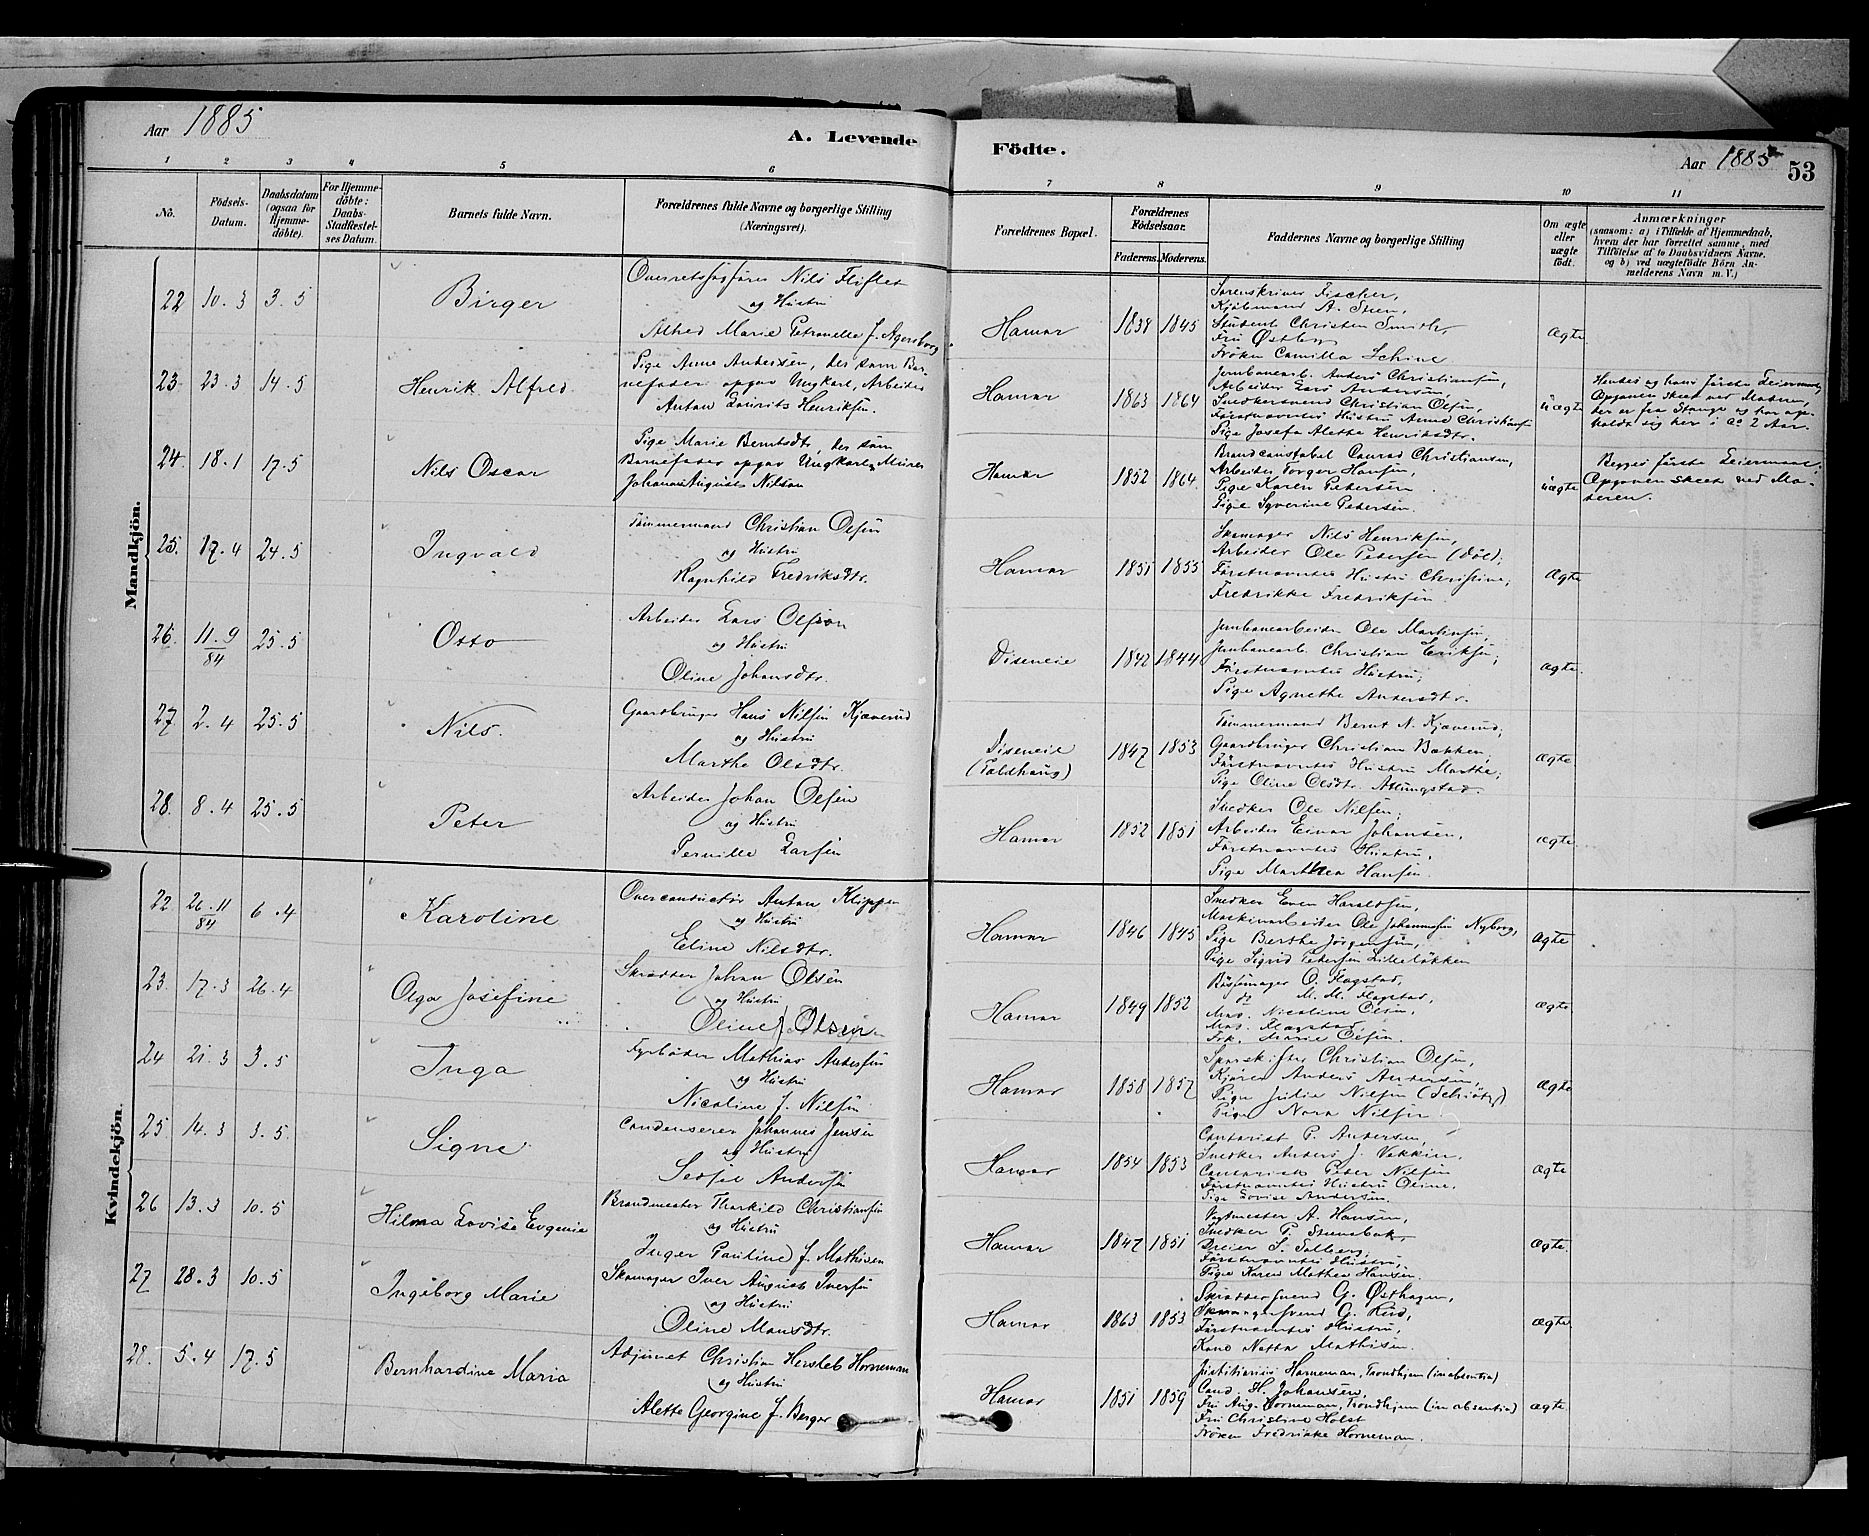 Aar 1885
A. Levende
Födte.
Aar 1885
53
1 2 3 4 5 6 7 8 9 10 11
No.
Födsels-Datum.
Daabsdatum (ogsaa for Hjemmedöbte).
For Hjemmedöbte: Daabs-Stadfæstelses Datum.
Barnets fulde Navn.
Forældrenes fulde Navne og borgerlige Stilling (Næringsvei).
Forældrenes Bopæl.
Forældrenes Födselsaar.
Faderens. Moderens.
Faddernes Navne og borgerlige Stilling
Om ægte eller uægte födt.
Anmærkninger
(saasom: a) i Tilfælde af Hjemmedaab, hvem der har forrettet samme, med Tilföielse af to Daabsvidners Navne, og b) ved uægtefödte Börn Anmelderens Navn m. V.)
Mandkjön.
22 10.3 3.5
Birger
Overretssagförer Nils Fliflet
og Hustru
Alhed Marie Petronelle f. Agersborg
Hamar
1838 1845
Sorenskriver Fischer,
Kjöbmand A. Steen,
Student Christen Smith,
Fru Östbye
Fröken Camilla Schive
ægte
23. 23.3 14.5
Henrik Alfred
Pige Anne Anderssen, der som Bar-
nefader opgav Ungkarl, Arbeider
Anton Laurits Henriksen.
Hamar
1863 1864
Jernbanearb. Anders Christiansen,
Arbeider Lars Andersen,
Snedkersvend Christian Olsen,
Förstnævntes Hustru Anne Christiansen
Pige Josefa Alette Henriksdtr.
uægte
Hendes og hans förste Leiermaal,
Opgaven skeet ved Moderen,
der er fra Stange og har op-
holdt sig her i ca 2 Aar.
24. 18.1 17.5
Nils Oscar
Pige Marie Berntsdtr, der som
Barnefader opgav Ungkarl, Murer
Johan August Nilson
Hamar
1852 1864.
Brandconstabel Conrad Christiansen,
Arbeider Torger Hansen,
Pige Karen Petersen
Pige Syverine Petersen.
uægte
Begges förste Leiermaal.
Opgaven skeet ved Mo-
deren.
25. 17.4 24.5
Ingvald
Tömmermand Christian Olsen
og Hustru
Ragnhild Fredriksdtr.
Hamar
1851 1855
Skomager Nils Henriksen,
Arbeider Ole Petersen (Döl);
Förstnævntes Hustru Christine;
Fredrikke Fredriksen.
ægte
26. 11.9/84 25.5
Otto
Arbeider Lars Olsson
og Hustru
Oline Johansdtr.
Diseneie
1842 1844
Jernbanearbeider Ole Martinsen,
Jernbanearb. Christian Eriksen;
Förstnævntes Hustru;
Pige Agnethe Andersdtr.
ægte.
27 2.4 25.5
Nils.
Gaardbruger Hans Nilsen Kjæverud
og Hustru
Marthe Olsdtr.
Diseneie
(Toldhaug)
1847 1853
Tömmermand Bernt N. Kjæverud,
Gaardbruger Christian Bækken,
Förstnævntes Hustru Marthe;
Pige Oline Olsdtr. Atlungstad.
ægte
28. 8.4 25.5
Peter
Arbeider Johan Olsen
og Hustru
Pernille Larsen
Hamar
1852 1851
Snedker Ole Nilsen;
Arbeider Einar Johansen,
Förstnævntes Hustru,
Pige Marthea Hansen.
ægte
Kvindekjön.
22 26.11/84 6.4
Karoline
Overconductör Anton Klippen
og Hustru
Eline Nilsdtr.
Hamar
1846 1845
Snedker Even Haraldsen,
Maskinarbeider Ole Johannesen Nyborg,
Pige Berthe Jörgensen,
Pige Sigrid Petersen Lilleløkken
ægte
23. 17.3 26.4
Olga Josefine
Skrædder Johan Olsen
og Hustru
Oline f. Olsen
Hamar
1849 1852
Bössemager O. Flagstad,
do M. M. Flagstad,
Mad. Nicoline Olsen,
Mad. Flagstad,
Frk. Marie Olsen.
ægte
24 21.3 3.5
Inga
Fyrböder Mathias Andersen
og Hustru
Nicoline f. Nilsen
Hamar
1858 1857
Christian Olsen,
Kjörer Anders Andersen,
Pige Julie Nilsen (Schiötz)
Pige Nora Nilsen
ægte
25. 14.3 3.5.
Signe
Condenserer Johannes Jensen
og Hustru
Sedsel Andersen
Hamar
1854 1853
Contorist P. Andersen,
Snedker Anders J. Vekken,
Contorist Peter Nilsen
Förstnævntes Hustru Oline,
Pige Lovise Andersen.
ægte
26 13.3 10.5
Hilma Lovise Evgenia
Brandmester Tharkild Christiansen
og Hustru
Inger Pauline f. Mathisen
Hamar
1847 1851
Vogtmester A. Hansen,
Snedker P. Stensbak,
Dreier S. Solberg,
Förstnævntes Hustru,
Pige Karen Mathea Hansen.
ægte.
27 28.3 10.5
Ingeborg Marie
Skomager Iver August Iversen
og Hustru
Oline Monsdtr.
Hamar
1863 1853
Skræddersvend G. Östhagen,
Skomagersvend G. Rud,
Förstnævntes Hustru,
Kone Netta Mathisen.
ægte
28. 5.4 17.5
Bernhardine Maria
Adjunct Christian Hersleb Horneman
og Hustru
Alette Georgine f. Berger
Hamar
1851 1859
Justitiarius Horneman, Trondhjem (in absentia)
Cand. H. Johansen,
Fru Aug. Horneman, Trondhjem (in absentia)
Fru Christine Holst
Fröken Fredrikke Horneman.
ægte